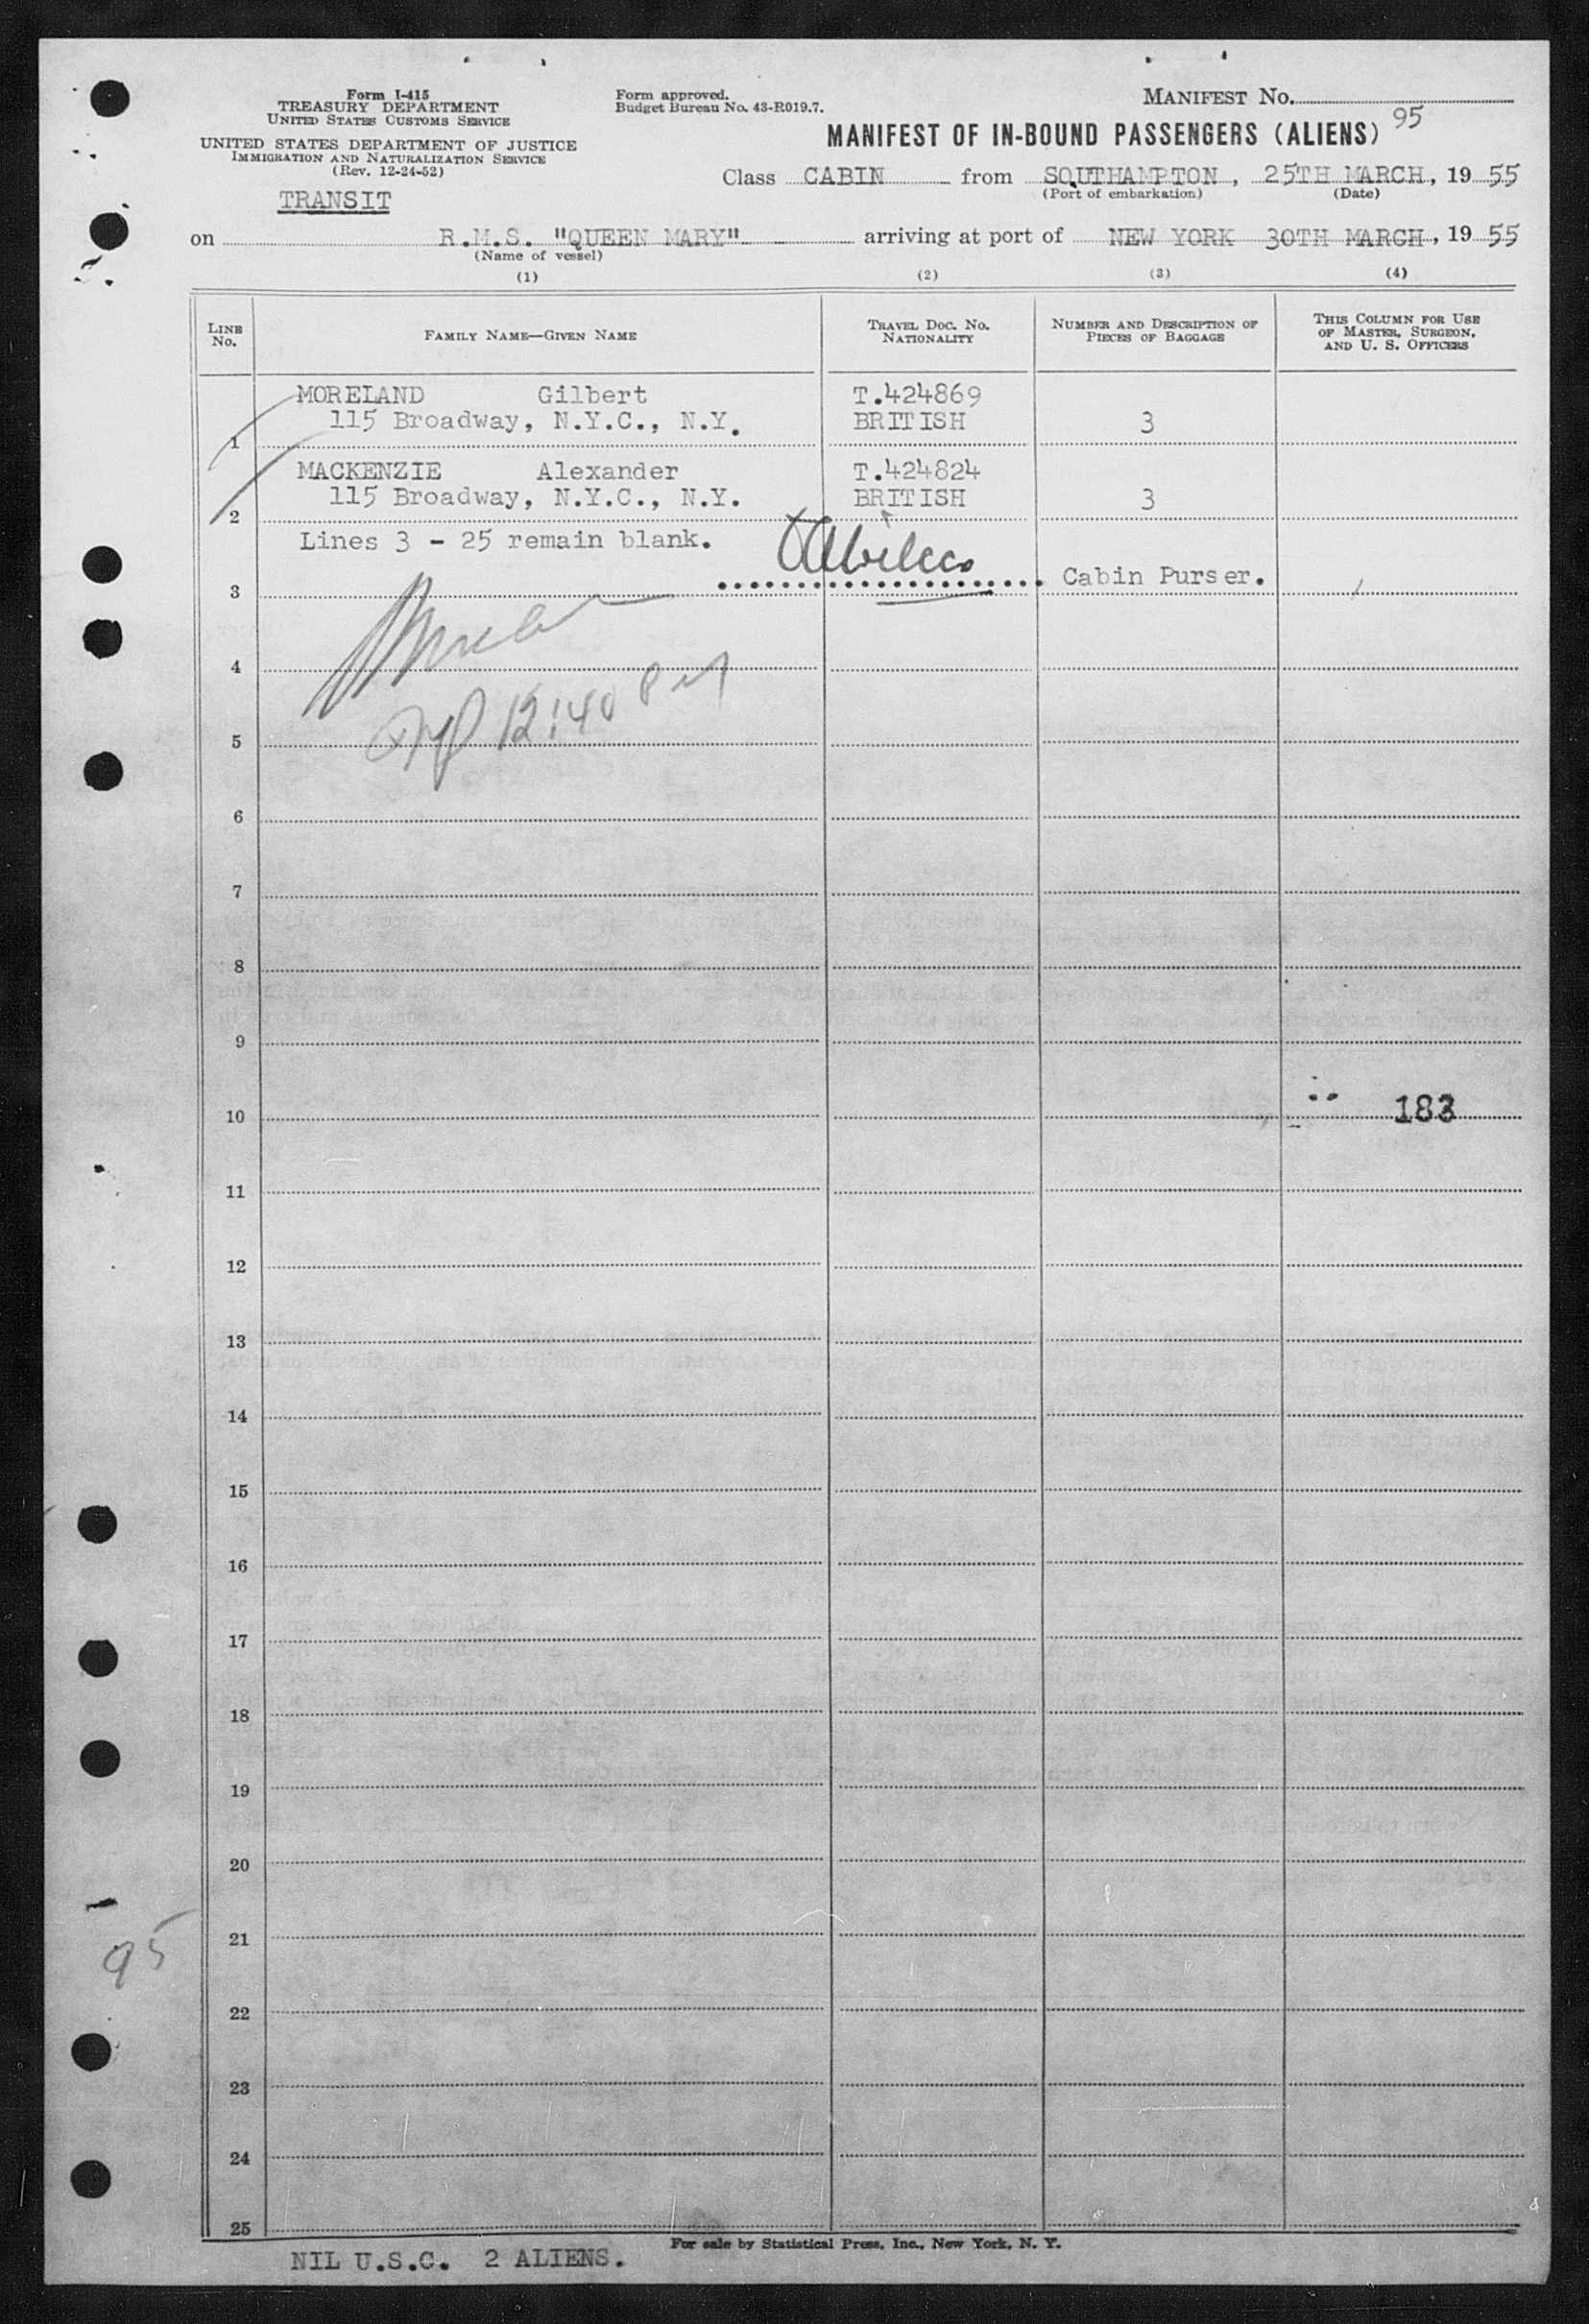 Form I-415
TREASURY DEPARTMENT
UNITED STATES CUSTOMS SERVICE
UNITED STATES DEPARTMENT OF JUSTICE
IMMIGRATION AND NATURALIZATION SERVICE
(Rev. 12-24-52)
TRANSIT
Form approved.
Budget Bureau No. 43-R019.7.
MANIFEST No.
95
MANIFEST OF IN-BOUND PASSENGERS (ALIENS)
Class CABIN from SOUTHAMPTON, 25TH MARCH, 19 55
(Port of embarkation) (Date)
on R.M.S. "QUEEN MARY" arriving at port of NEW YORK 30TH MARCH, 19 55
(Name of vessel)
(1) (2) (3) (4)
LINE No. FAMILY NAME—GIVEN NAME TRAVEL DOC. No. NATIONALITY NUMBER AND DESCRIPTION OF PIECES OF BAGGAGE THIS COLUMN FOR USE OF MASTER, SURGEON, AND U. S. OFFICERS
MORELAND Gilbert T.424869
1 115 Broadway, N.Y.C., N.Y. BRITISH 3
MACKENZIE Alexander T.424824
2 115 Broadway, N.Y.C., N.Y. BRITISH 3
Lines 3 - 25 remain blank.
3 Cabin Purser.
4
12:40 PM
5
6
7
8
9
10 183
11
12
13
14
15
16
17
18
19
20
21
95
22
23
24
25
For sale by Statistical Press, Inc., New York, N. Y.
NIL U.S.C. 2 ALIENS.